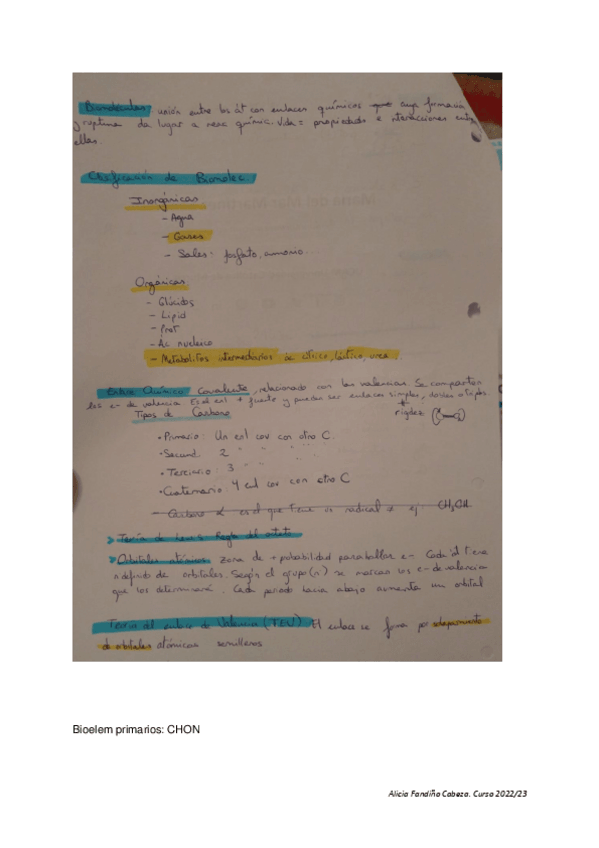 Biomoléculas: unión entre los át con enlaces químicos cuya formación
y ruptura da lugar a reac química. Vida = propiedades e interacciones entre
ellas.
Clasificación de Biomolec
Inorgánicas
- Agua
- Gases
- Sales: fosfato, amonio
Orgánicas
- Glúcidos
- Lípid
- Prot
- Ác nucleico
- Metabolitos intermediarios ác cítrico, láctico, urea
Enlace Químico Covalente, relacionado con las valencias. Se comparten
los e- de valencia. Es el enl + fuerte y pueden ser enlaces simples, dobles o triples
Tipos de Carbono
rigidez
• Primario: Un enl cov con otro C.
• Secund. 2 " " " "
• Terciario: 3 " " "
• Cuaternario: 4 enl cov con otro C
- Carbono α es el que tiene un radical ej: CH3OH
Teoría de Lewis Regla del octeto
Orbitales atómicos: zona de + probabilidad para hallar e- Cada át tiene
n definido de orbitales. Según el grupo (n) se marcan los e- de valencia
que los determinará. Cada periodo hacia abajo aumenta un orbital
Teoría del enlace de Valencia (TEV) El enlace se forma por solapamiento
de orbitales atómicos semillenos
Bioelem primarios: CHON
Alicia Fandiño Cabeza. Curso 2022/23